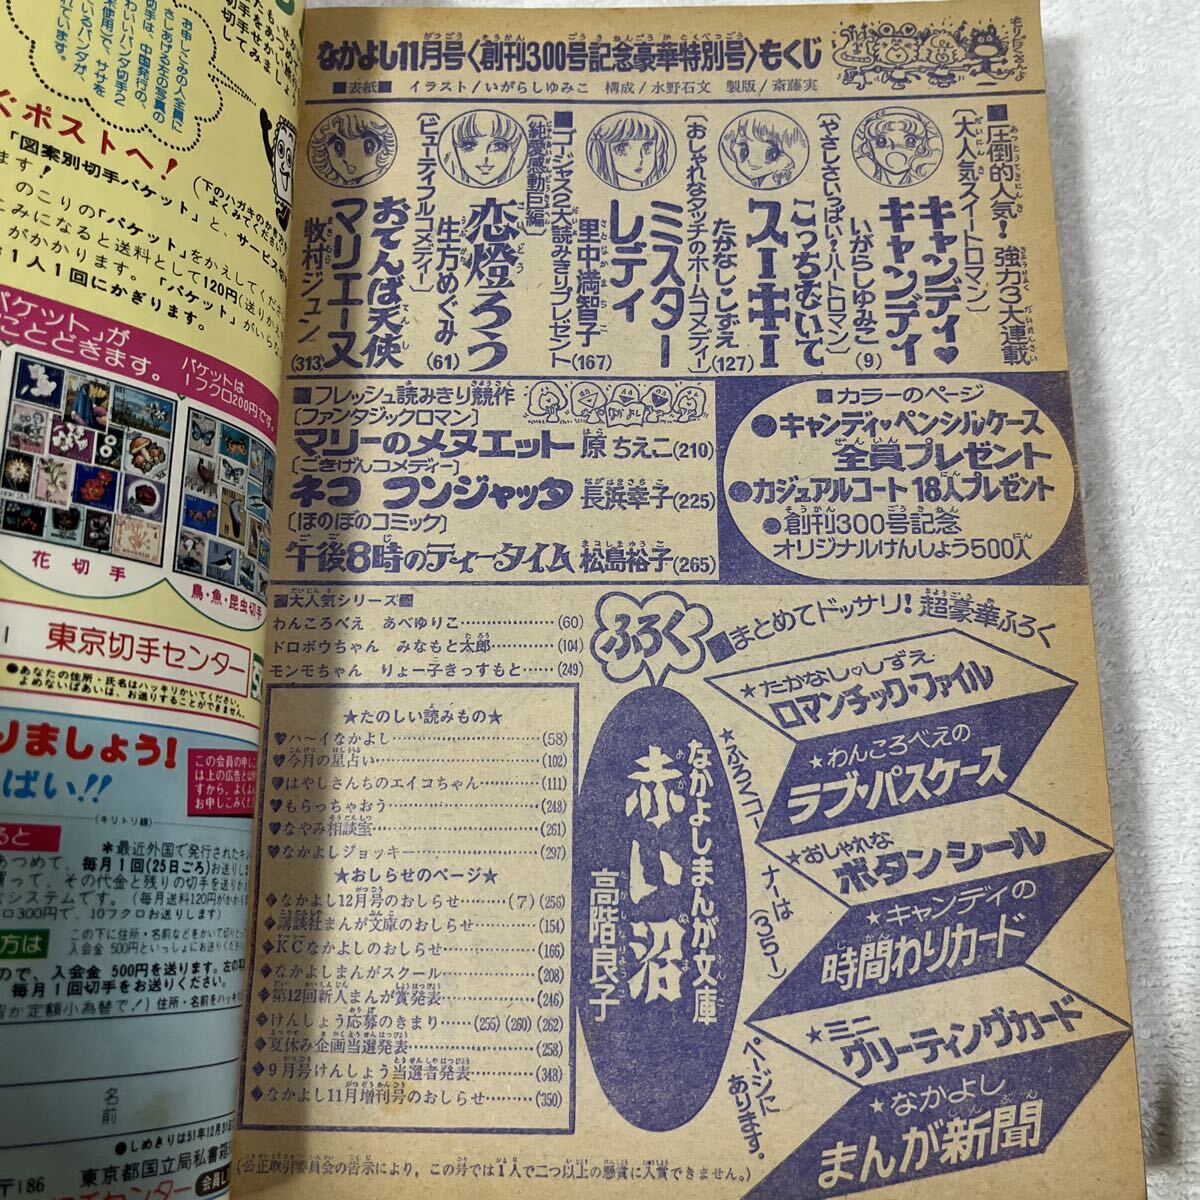 なかよし11月号〈創刊300号記念豪華特別号〉もくじ
■表紙■ イラスト/いがらしゆみこ 構成/水野石文 製版/斎藤実
■圧倒的人気! 強力3大連載
〔大人気スイートロマン〕
キャンディ♥キャンディ
いがらしゆみこ(9)
〔やさしさいっぱい!ハートロマン〕
こっちむいてスーキー!
たかなし♡しずえ(127)
〔おしゃれなタッチのホームコメディー〕
ミスターレディ
里中満智子(167)
■ゴージャス2大読みきりプレゼント
〔純愛感動巨編〕
恋燈ろう
生方めぐみ(61)
〔ビューティフルコメディー〕
おてんば天使マリエーヌ
牧村ジュン(313)
■フレッシュ読みきり競作
〔ファンタジックロマン〕
マリーのメヌエット 原ちえこ(210)
〔ごきげんコメディー〕
ネコ フンジャッタ 長浜幸子(225)
〔ほのぼのコミック〕
午後8時のティータイム 松島裕子(265)
■カラーのページ
●キャンディ・ペンシルケース
全員プレゼント
●カジュアルコート 18人プレゼント
●創刊300号記念
オリジナルけんしょう500人
■大人気シリーズ■
わんころべえ あべゆりこ…(60)
ドロボウちゃん みなもと太郎…(104)
モンモちゃん りょー子きっすもと…(249)
★たのしい読みもの★
♥ハーイなかよし…(58)
♥今月の星占い…(102)
♥はやしさんちのエイコちゃん…(111)
♥もらっちゃおう…(243)
♥なやみ相談室…(261)
♥なかよしジョッキー…(297)
★おしらせのページ★
◆なかよし12月号のおしらせ…(7)(256)
◆講談社まんが文庫のおしらせ…(154)
◆KCなかよしのおしらせ…(166)
◆なかよしまんがスクール…(208)
◆第12回新人まんが賞発表…(246)
◆けんしょう応募のきまり…(255)(260)(262)
◆夏休み企画当選発表…(258)
◆9月号けんしょう当選者発表…(343)
◆なかよし11月増刊号のおしらせ…(350)
(公正取引委員会の告示により、この号では1人で二つ以上の懸賞に入賞できません。)
ふろく
■まとめてドッサリ! 超豪華ふろく
なかよしまんが文庫
赤い沼
高階良子
★たかなし♡しずえ
ロマンチック・ファイル
★わんころべえの
ラブ・パスケース
★おしゃれな
ボタンシール
★キャンディの
時間わりカード
★ミニ
グリーティングカード
★なかよし
まんが新聞
★ふろくコーナーは(351)ページにあります。
お申しこみの人全員に
さしあげる左の写真の
切手は、中国発行の、
わいいパンダ切手2
ポストへ!
「図案別切手パケット」
(下のハガキのかきかたを
よくみてください)
のこりの「パケット」と、サービス
みになると送料として120円(送りかえ
がかかります。「パケット」がいらな
1人1回にかぎります。
パケット」が
とどきます。
パケットは
1フクロ200円です。
花切手
鳥・魚・昆虫切手
東京切手センター
●あなたの住所・氏名はハッキリかいてください。
よめないばあいは、お送りすることができません。
りましょう!
ぱい!!
この会員の申しこ
は上の広告とは
すから、よく
お申しこみくだ
(キリトリ線)
*最近外国で発行されたキ
あつめて、毎月1回(25日ごろ)お送りしま
買って、その代金と残りの切手を送りかえ
システムです。(毎月送料120円がかかります
300円で、10フクロお送りします)
方は
この下に住所・名前などをかいて切りとり
入会金500円といっしょにお送りください
ので、入会金 500円を送ります。左の写
毎月1回切手をお送りください。
定額小為替で!) 住所・名前をハッキリ
名前
●しめきりは51年12月31日
〒186 東京都国立局私書箱
切手センター 会員